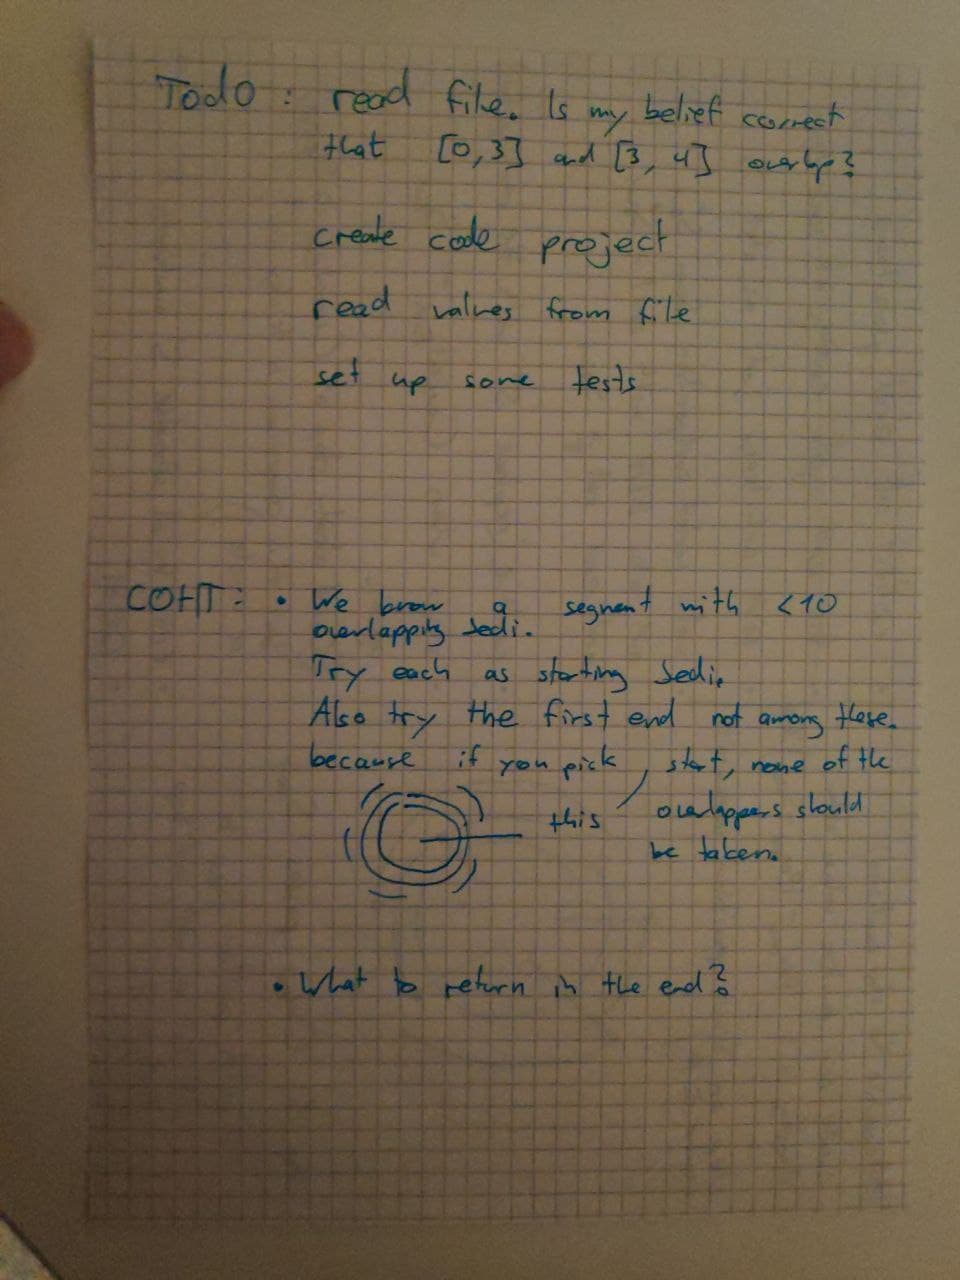 Todo: read file. Is my belief correct
that [0,3] and [3,4] overlap?
create code project
read values from file
set up some tests
• We know a segment with <10
overlapping Jedi.
Try each as starting Jedi.
Also try the first end not among these.
because if you pick, start, none of the
this overlappers should
be taken.
• What to return in the end?